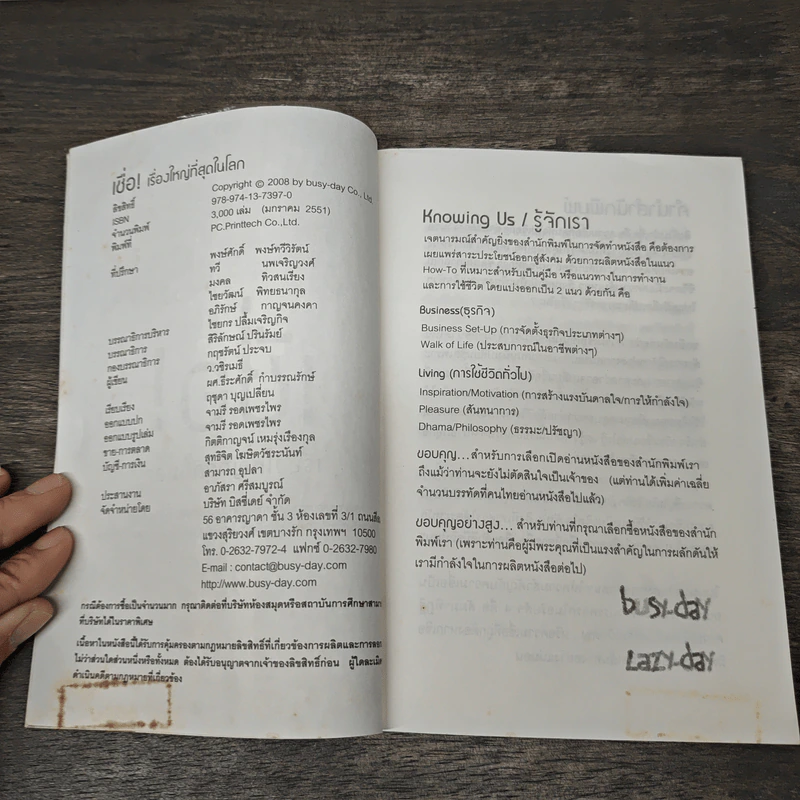 เชื่อ! เรื่องใหญ่ที่สุดในโลก
ลิขสิทธิ์ Copyright © 2008 by busy-day Co., Ltd.
ISBN 978-974-13-7397-0
จำนวนพิมพ์ 3,000 เล่ม (มกราคม 2551)
พิมพ์ที่ PC.Printtech Co.,Ltd.
ที่ปรึกษา พงษ์ศักดิ์ พงษ์ทวีวิรัตน์
ทวี นพเจริญวงศ์
มงคล ทิวสนเรียง
ไชยวัฒน์ พิทยธนากุล
อภิรักษ์ กาญจนคงคา
ไชยกร ปลื้มเจริญกิจ
บรรณาธิการบริหาร สิริลักษณ์ ปรินรัมย์
บรรณาธิการ กฤชรัตน์ ประจบ
กองบรรณาธิการ ว.วชิรเมธี
ผู้เขียน ผศ.ธีระศักดิ์ กำบรรณารักษ์
ฤชุดา บุญเปลี่ยน
เรียบเรียง จามรี รอดเพชรไพร
ออกแบบปก จามรี รอดเพชรไพร
ออกแบบรูปเล่ม กิตติกาญจน์ เหมรุ่งเรืองกุล
ขาย-การตลาด สุทธิจิต โฆษิตวัชระนันท์
บัญชี-การเงิน สามารถ อุปลา
ประสานงาน อาภัสรา ศรีสมบูรณ์
จัดจำหน่ายโดย บริษัท บิสซี่เดย์ จำกัด
56 อาคารญาดา ชั้น 3 ห้องเลขที่ 3/1 ถนน
แขวงสุริยวงศ์ เขตบางรัก กรุงเทพฯ 10500
โทร. 0-2632-7972-4 แฟกซ์ 0-2632-7980
E-mail : contact@busy-day.com
http://www.busy-day.com
กรณีต้องการซื้อเป็นจำนวนมาก กรุณาติดต่อที่บริษัทห้องสมุดหรือสถาบันการศึกษา
ที่บริษัทได้ในราคาพิเศษ
เนื้อหาในหนังสือนี้ได้รับการคุ้มครองตามกฎหมายลิขสิทธิ์ที่เกี่ยวข้องการผลิตและการ
ไม่ว่าส่วนใดส่วนหนึ่งหรือทั้งหมด ต้องได้รับอนุญาตจากเจ้าของลิขสิทธิ์ก่อน ผู้ใดละเมิด
ดำเนินคดีตามกฎหมายที่เกี่ยวข้อง
Knowing Us / รู้จักเรา
เจตนารมณ์สำคัญยิ่งของสำนักพิมพ์ในการจัดทำหนังสือ คือต้องการ
เผยแพร่สาระประโยชน์ออกสู่สังคม ด้วยการผลิตหนังสือในแนว
How-To ที่เหมาะสำหรับเป็นคู่มือ หรือแนวทางในการทำงาน
และการใช้ชีวิต โดยแบ่งออกเป็น 2 แนว ด้วยกัน คือ
Business(ธุรกิจ)
Business Set-Up (การจัดตั้งธุรกิจประเภทต่างๆ)
Walk of Life (ประสบการณ์ในอาชีพต่างๆ)
Living (การใช้ชีวิตทั่วไป)
Inspiration/Motivation (การสร้างแรงบันดาลใจ/การให้กำลังใจ)
Pleasure (สันทนาการ)
Dhama/Philosophy (ธรรมะ/ปรัชญา)
ขอบคุณ...สำหรับการเลือกเปิดอ่านหนังสือของสำนักพิมพ์เรา
ถึงแม้ว่าท่านจะยังไม่ตัดสินใจเป็นเจ้าของ (แต่ท่านได้เพิ่มค่าเฉลี่ย
จำนวนบรรทัดที่คนไทยอ่านหนังสือไปแล้ว)
ขอบคุณอย่างสูง... สำหรับท่านที่กรุณาเลือกซื้อหนังสือของสำนัก
พิมพ์เรา (เพราะท่านคือผู้มีพระคุณที่เป็นแรงสำคัญในการผลักดันให้
เรามีกำลังใจในการผลิตหนังสือต่อไป)
busy-day
Lazy-day